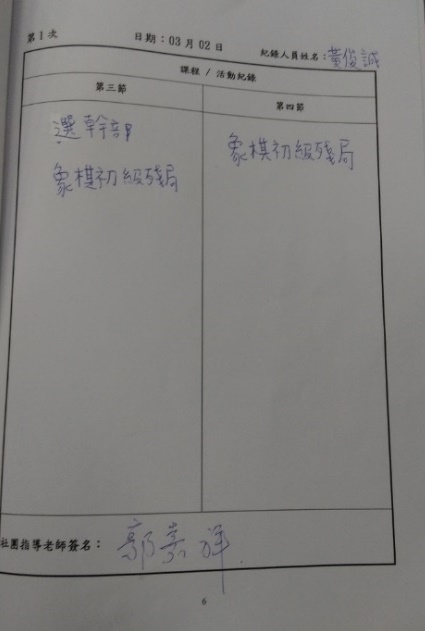 第1次 日期：03月02日 紀錄人員姓名：黃俊誠
課程 / 活動紀錄
第三節 第四節
選幹部
象棋初級殘局
象棋初級殘局
社團指導老師簽名：郭嘉祥
6